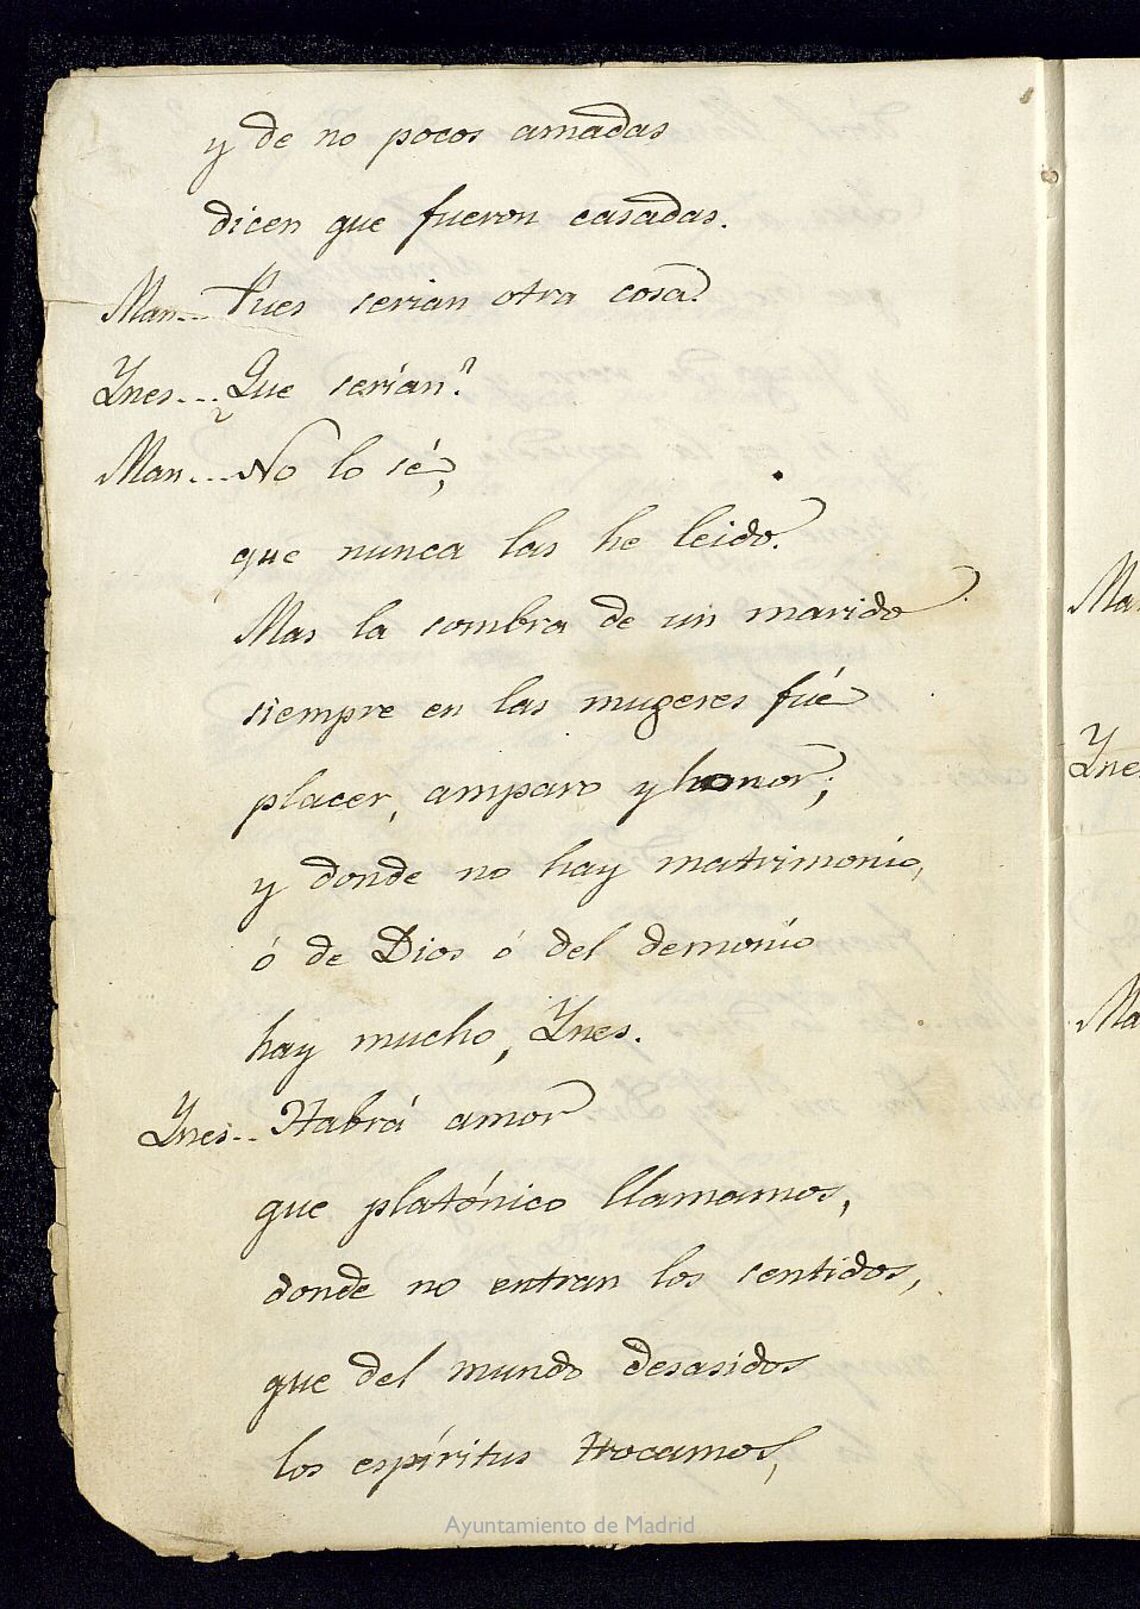 y de no pocos amadas
dicen que fueron casadas.
Man... Pues serian otra cosa.
Ynes... ¿Que serían?
Man... No lo sé,
que nunca las he leido.
Mas la sombra de un marido
siempre en las mugeres fué
placer, amparo y honor;
y donde no hay matrimonio,
ó de Dios ó del demonio
hay mucho, Ynes.
Ynes.. Habrá amor
que platónico llamamos,
donde no entran los sentidos,
que del mundo desasidos
los espíritus trocamos,
Ayuntamiento de Madrid
Ma
Yne
Ma